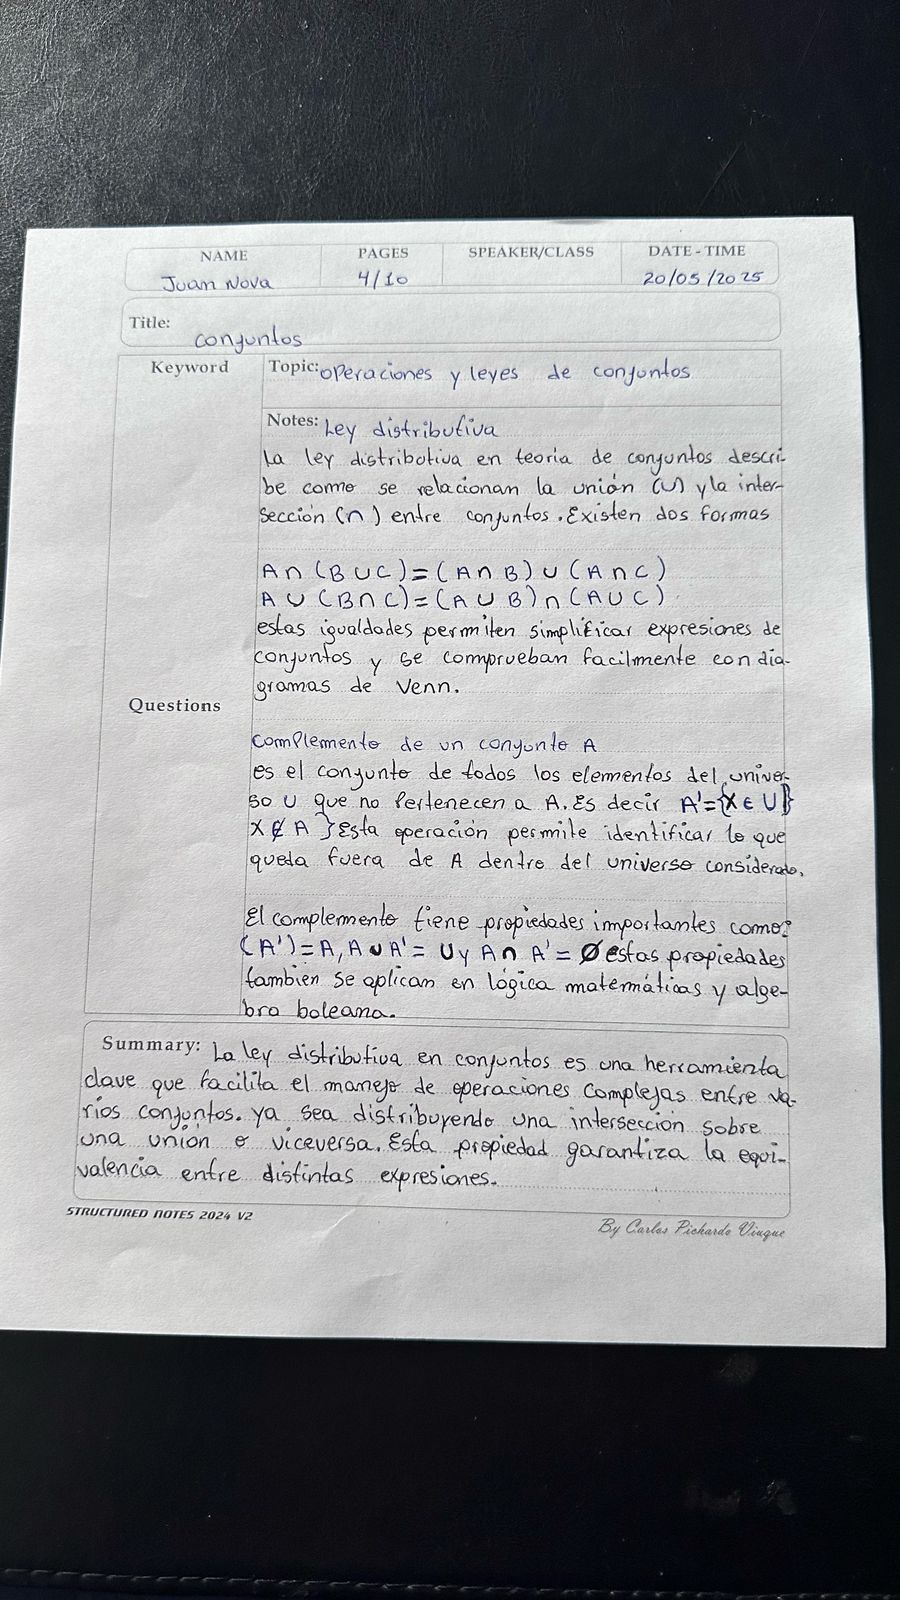 NAME PAGES SPEAKER/CLASS DATE - TIME
Juan Nova 4/10 20/05/2025
Title:
conjuntos
Keyword
Topic: operaciones y leyes de conjuntos
Notes: Ley distributiva
La ley distributiva en teoria de conjuntos descri-
be como se relacionan la unión (∪) y la inter-
sección (∩) entre conjuntos. Existen dos formas
A ∩ (B ∪ C) = (A ∩ B) ∪ (A ∩ C)
A ∪ (B ∩ C) = (A ∪ B) ∩ (A ∪ C).
estas igualdades permiten simplificar expresiones de
conjuntos y se comprueban facilmente con dia-
gramas de Venn.
Questions
complemento de un conjunto A
es el conjunto de todos los elementos del univer-
so U que no Pertenecen a A. Es decir A'={X ∈ U|}
X ∉ A } Esta operación permite identificar lo que
queda fuera de A dentro del universo considerado.
El complemento tiene propiedades importantes como:
(A')=A, A ∪ A' = U y A ∩ A' = Ø estas propiedades
tambien se aplican en lógica matemáticas y alge-
bra boleana.
Summary: La ley distributiva en conjuntos es una herramienta
clave que facilita el manejo de operaciones complejas entre va-
rios conjuntos. ya sea distribuyendo una intersección sobre
una unión o viceversa. Esta propiedad garantiza la equi-
valencia entre distintas expresiones.
STRUCTURED NOTES 2024 V2
By Carlos Pichardo Viuque